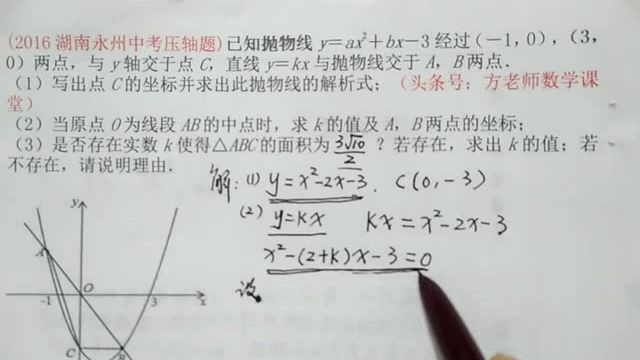 (2016 湖南永州中考压轴题)已知抛物线 y=ax²+bx-3 经过(-1, 0), (3,
0) 两点，与 y 轴交于点 C, 直线 y=kx 与抛物线交于 A, B 两点.
(1) 写出点 C 的坐标并求出此抛物线的解析式; (头条号: 方老师数学课
堂)
(2) 当原点 O 为线段 AB 的中点时，求 k 的值及 A, B 两点的坐标;
(3) 是否存在实数 k 使得△ABC 的面积为 3√10/2 ? 若存在，求出 k 的值; 若
不存在，请说明理由.
解: (1) y=x²-2x-3. C(0,-3)
(2) y=kx kx=x²-2x-3
x²-(2+k)x-3=0
设
y
A
-1 O 3 x
C B